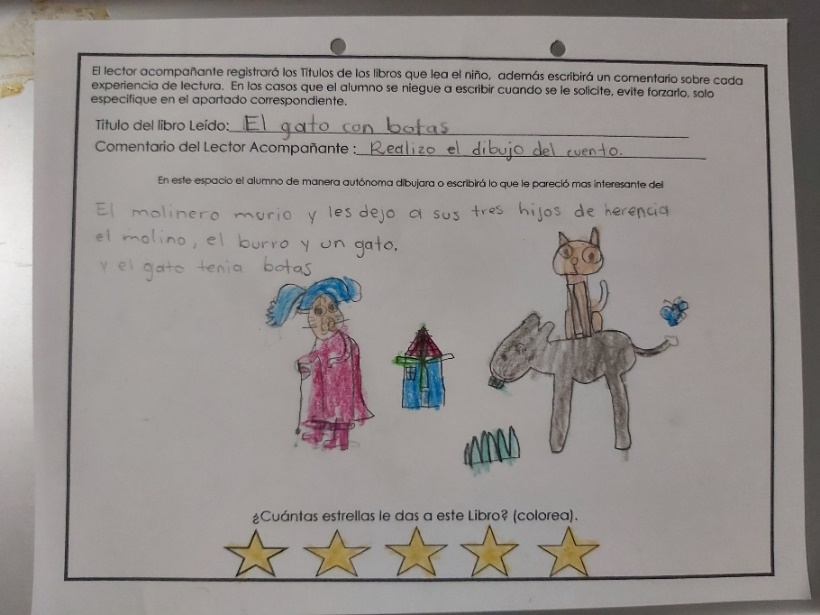 El lector acompañante registrará los Títulos de los libros que lea el niño, además escribirá un comentario sobre cada
experiencia de lectura. En los casos que el alumno se niegue a escribir cuando se le solicite, evite forzarlo, solo
especifique en el apartado correspondiente.
Título del libro Leído: El gato con botas
Comentario del Lector Acompañante : Realizo el dibujo del cuento.
En este espacio el alumno de manera autónoma dibujara o escribirá lo que le pareció mas interesante del
El molinero murio y les dejo a sus tres hijos de herencia
el molino, el burro y un gato.
y el gato tenia botas
¿Cuántas estrellas le das a este Libro? (colorea).